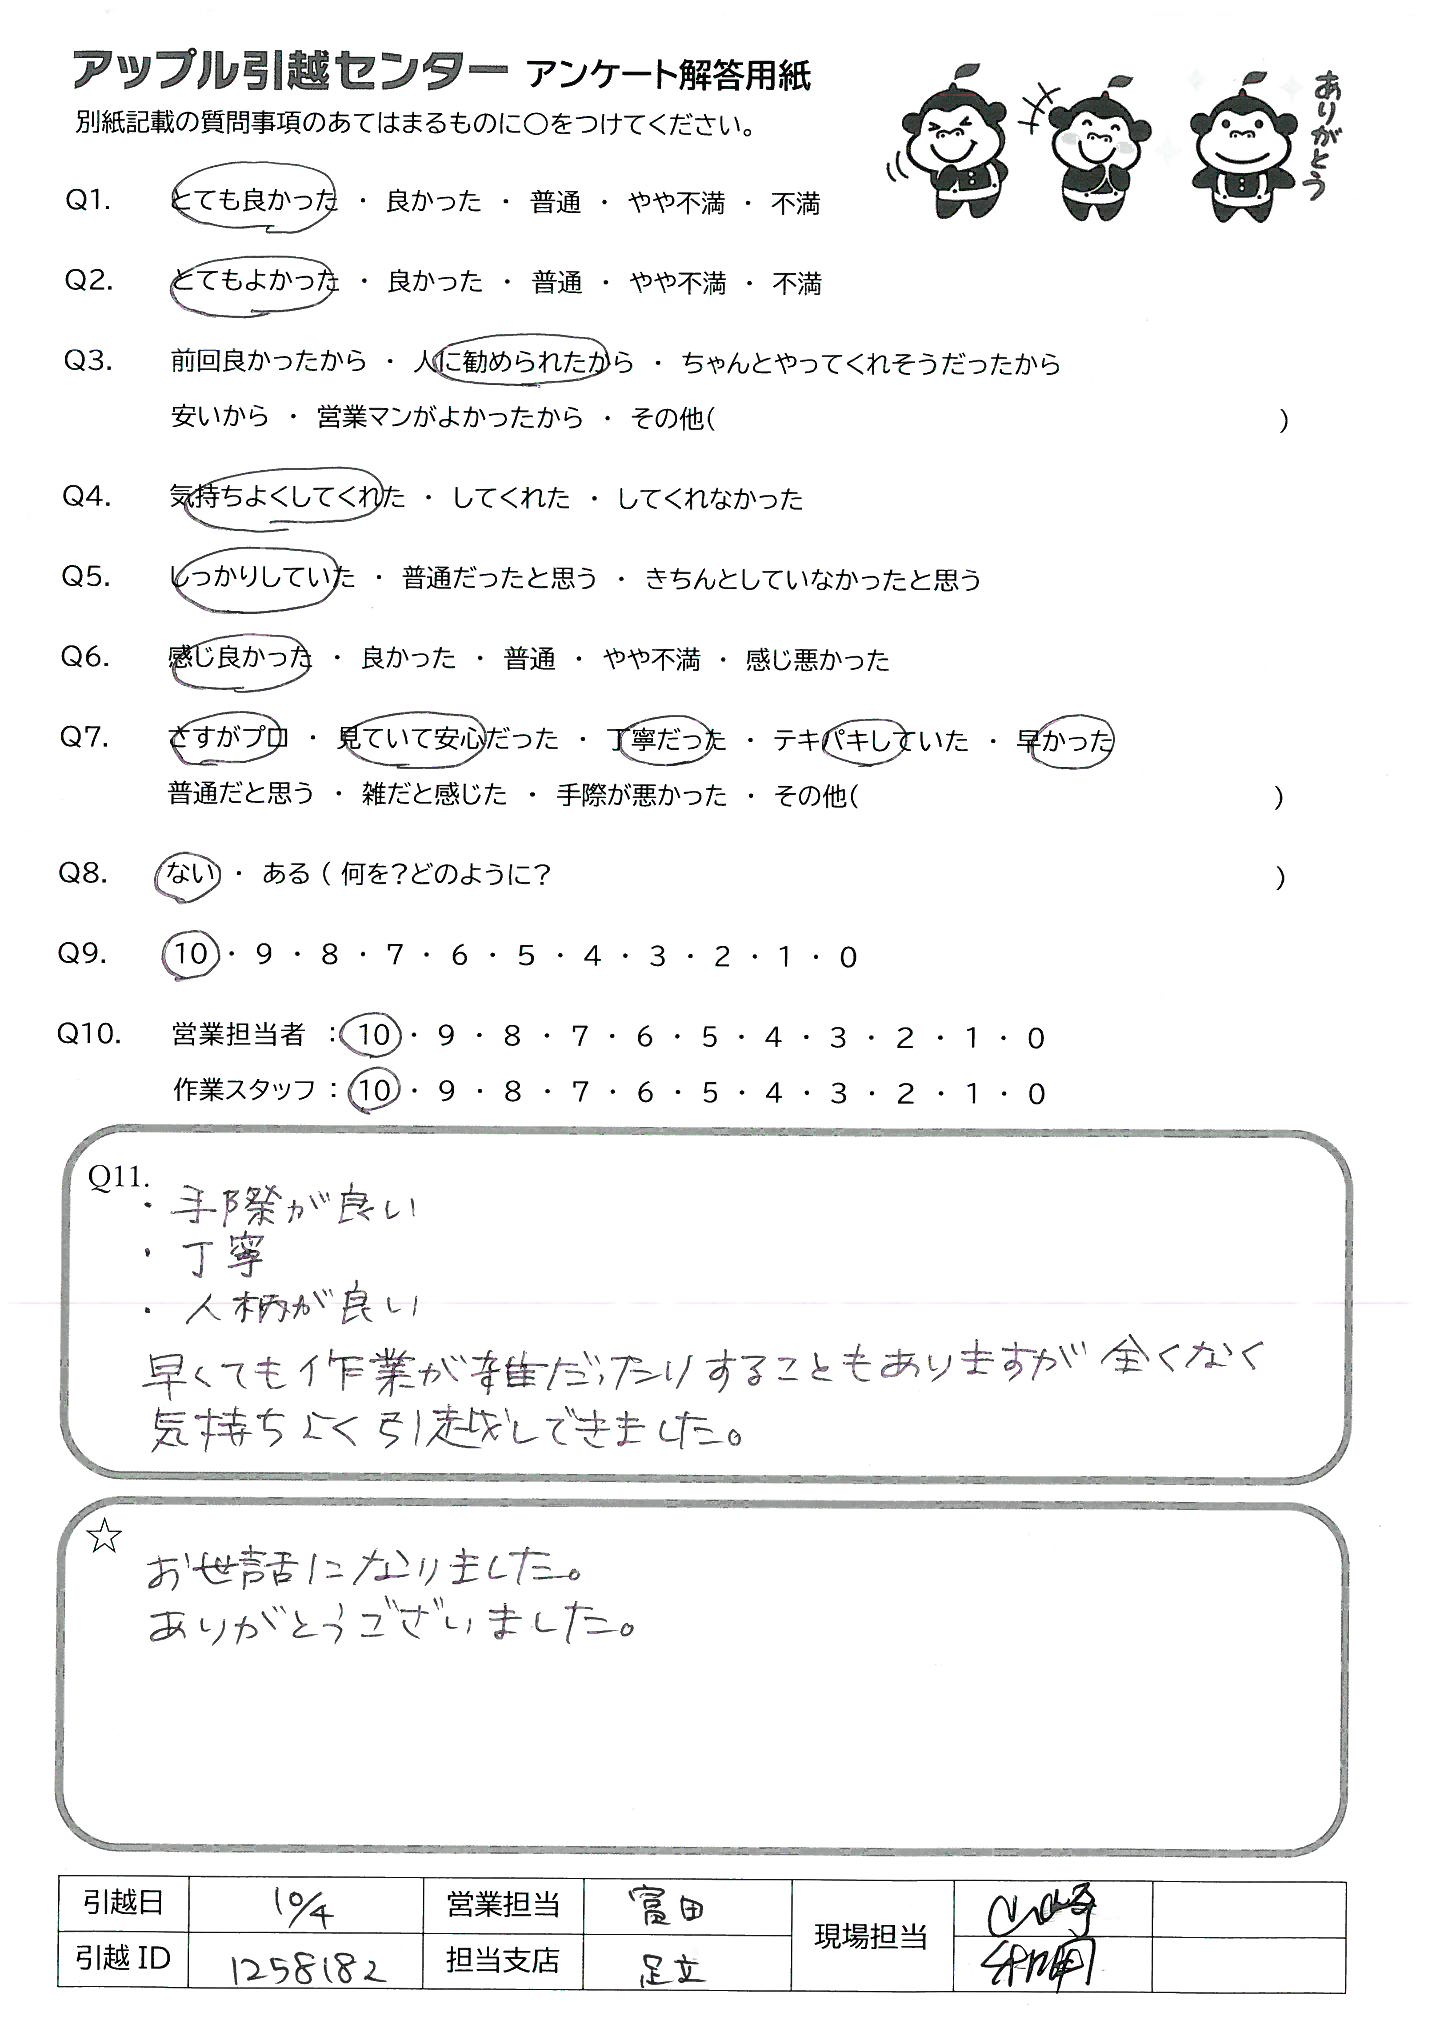 アップル引越センター アンケート解答用紙
別紙記載の質問事項のあてはまるものに○をつけてください。
ありがとう
Q1. とても良かった ・ 良かった ・ 普通 ・ やや不満 ・ 不満
Q2. とてもよかった ・ 良かった ・ 普通 ・ やや不満 ・ 不満
Q3. 前回良かったから ・ 人に勧められたから ・ ちゃんとやってくれそうだったから
安いから ・ 営業マンがよかったから ・ その他( )
Q4. 気持ちよくしてくれた ・ してくれた ・ してくれなかった
Q5. しっかりしていた ・ 普通だったと思う ・ きちんとしていなかったと思う
Q6. 感じ良かった ・ 良かった ・ 普通 ・ やや不満 ・ 感じ悪かった
Q7. さすがプロ ・ 見ていて安心だった ・ 丁寧だった ・ テキパキしていた ・ 早かった
普通だと思う ・ 雑だと感じた ・ 手際が悪かった ・ その他( )
Q8. ない ・ ある ( 何を?どのように? )
Q9. 10 ・ 9 ・ 8 ・ 7 ・ 6 ・ 5 ・ 4 ・ 3 ・ 2 ・ 1 ・ 0
Q10. 営業担当者 : 10 ・ 9 ・ 8 ・ 7 ・ 6 ・ 5 ・ 4 ・ 3 ・ 2 ・ 1 ・ 0
作業スタッフ : 10 ・ 9 ・ 8 ・ 7 ・ 6 ・ 5 ・ 4 ・ 3 ・ 2 ・ 1 ・ 0
Q11.
・ 手際が良い
・ 丁寧
・ 人柄が良い
早くても作業が雑だったりすることもありますが全くなく
気持ちよく引越しできました。
☆
お世話になりました。
ありがとうございました。
引越日 10/4 営業担当 富田 現場担当 山崎
引越ID 1258182 担当支店 足立